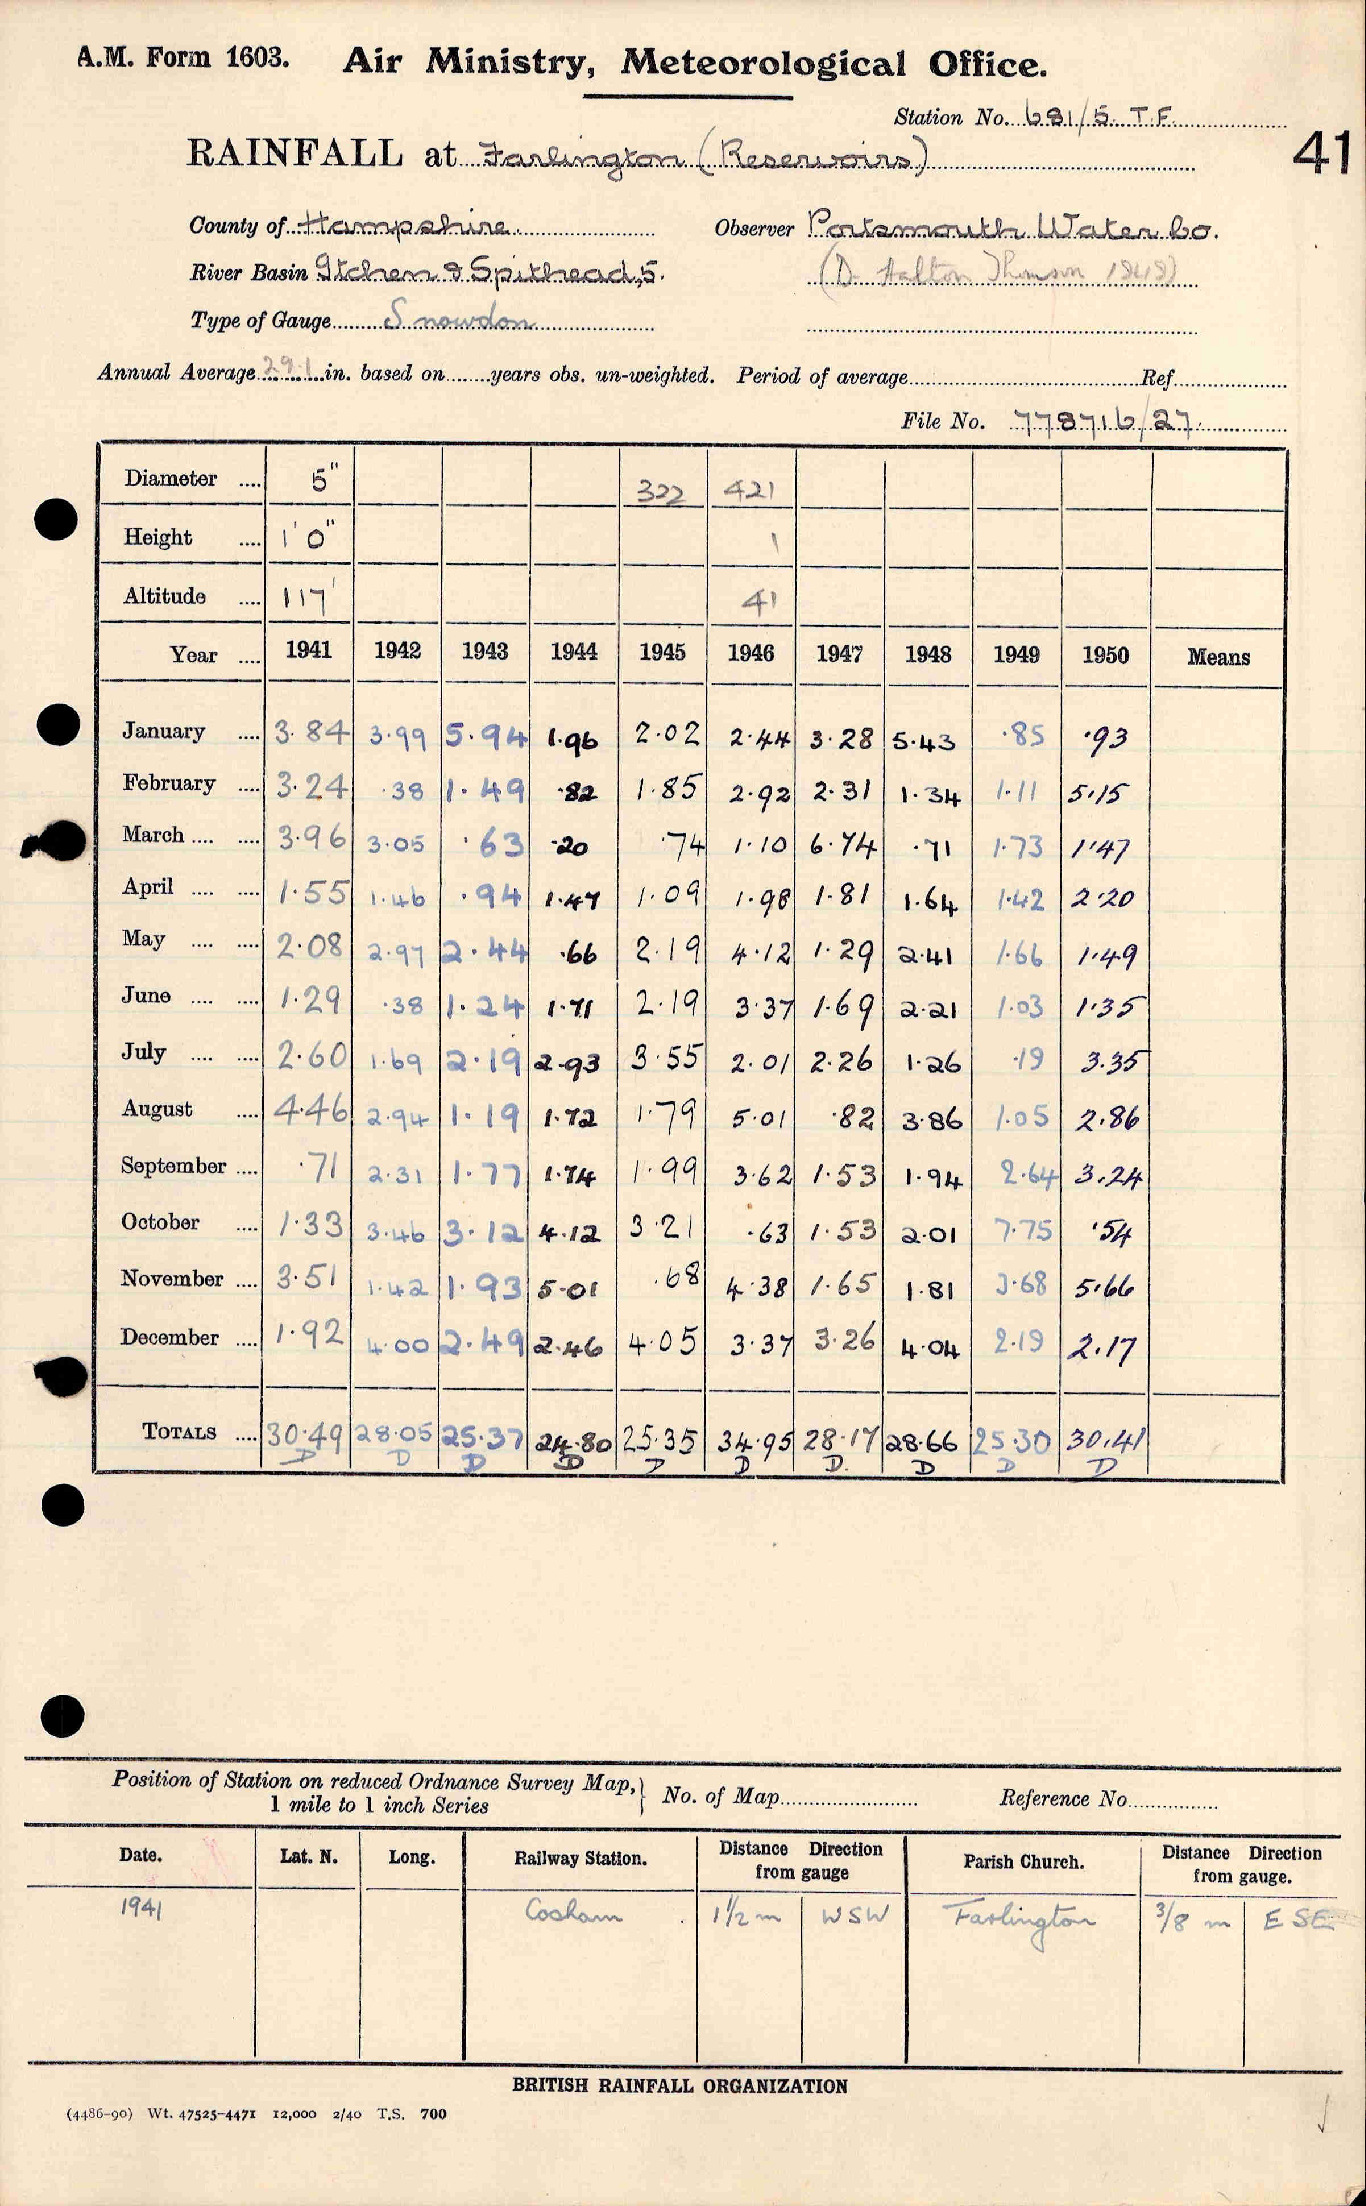 A.M. Form 1603. Air Ministry, Meteorological Office.
Station No. 681/5 T.F.
41
RAINFALL at Farlington (Reservoirs)
County of Hampshire Observer Portsmouth Water Co.
River Basin Itchen & Spithead, 5. (D. Halton Thomson 1948)
Type of Gauge Snowdon
Annual Average 29.1 in. based on years obs. un-weighted. Period of average Ref.
File No. 778716/27
Diameter .... 5" 322 421
Height .... 1' 0" 1
Altitude .... 117' 41
Year .... 1941 1942 1943 1944 1945 1946 1947 1948 1949 1950 Means
January .... 3.84 3.99 5.94 1.96 2.02 2.44 3.28 5.43 .85 .93
February .... 3.24 .38 1.49 .82 1.85 2.92 2.31 1.34 1.11 5.15
March .... .... 3.96 3.05 .63 .20 .74 1.10 6.74 .71 1.73 1.47
April .... .... 1.55 1.46 .94 1.47 1.09 1.98 1.81 1.64 1.42 2.20
May .... .... 2.08 2.97 2.44 .66 2.19 4.12 1.29 2.41 1.66 1.49
June .... .... 1.29 .38 1.24 1.71 2.19 3.37 1.69 2.21 1.03 1.35
July .... .... 2.60 1.69 2.19 2.93 3.55 2.01 2.26 1.26 .19 3.35
August .... 4.46 2.94 1.19 1.72 1.79 5.01 .82 3.86 1.05 2.86
September .... .71 2.31 1.77 1.74 1.99 3.62 1.53 1.94 2.64 3.24
October .... 1.33 3.46 3.12 4.12 3.21 .63 1.53 2.01 7.75 .54
November .... 3.51 1.42 1.93 5.01 .68 4.38 1.65 1.81 3.68 5.66
December .... 1.92 4.00 2.49 2.46 4.05 3.37 3.26 4.04 2.19 2.17
TOTALS .... 30.49 28.05 25.37 24.80 25.35 34.95 28.17 28.66 25.30 30.41
D D D D D D D. D D D
Position of Station on reduced Ordnance Survey Map, } No. of Map Reference No.
1 mile to 1 inch Series
Date. Lat. N. Long. Railway Station. Distance Direction from gauge Parish Church. Distance Direction from gauge.
1941 Cosham 1½ m WSW Farlington 3/8 m ESE
BRITISH RAINFALL ORGANIZATION
(4486-90) Wt. 47525-4471 12,000 2/40 T.S. 700